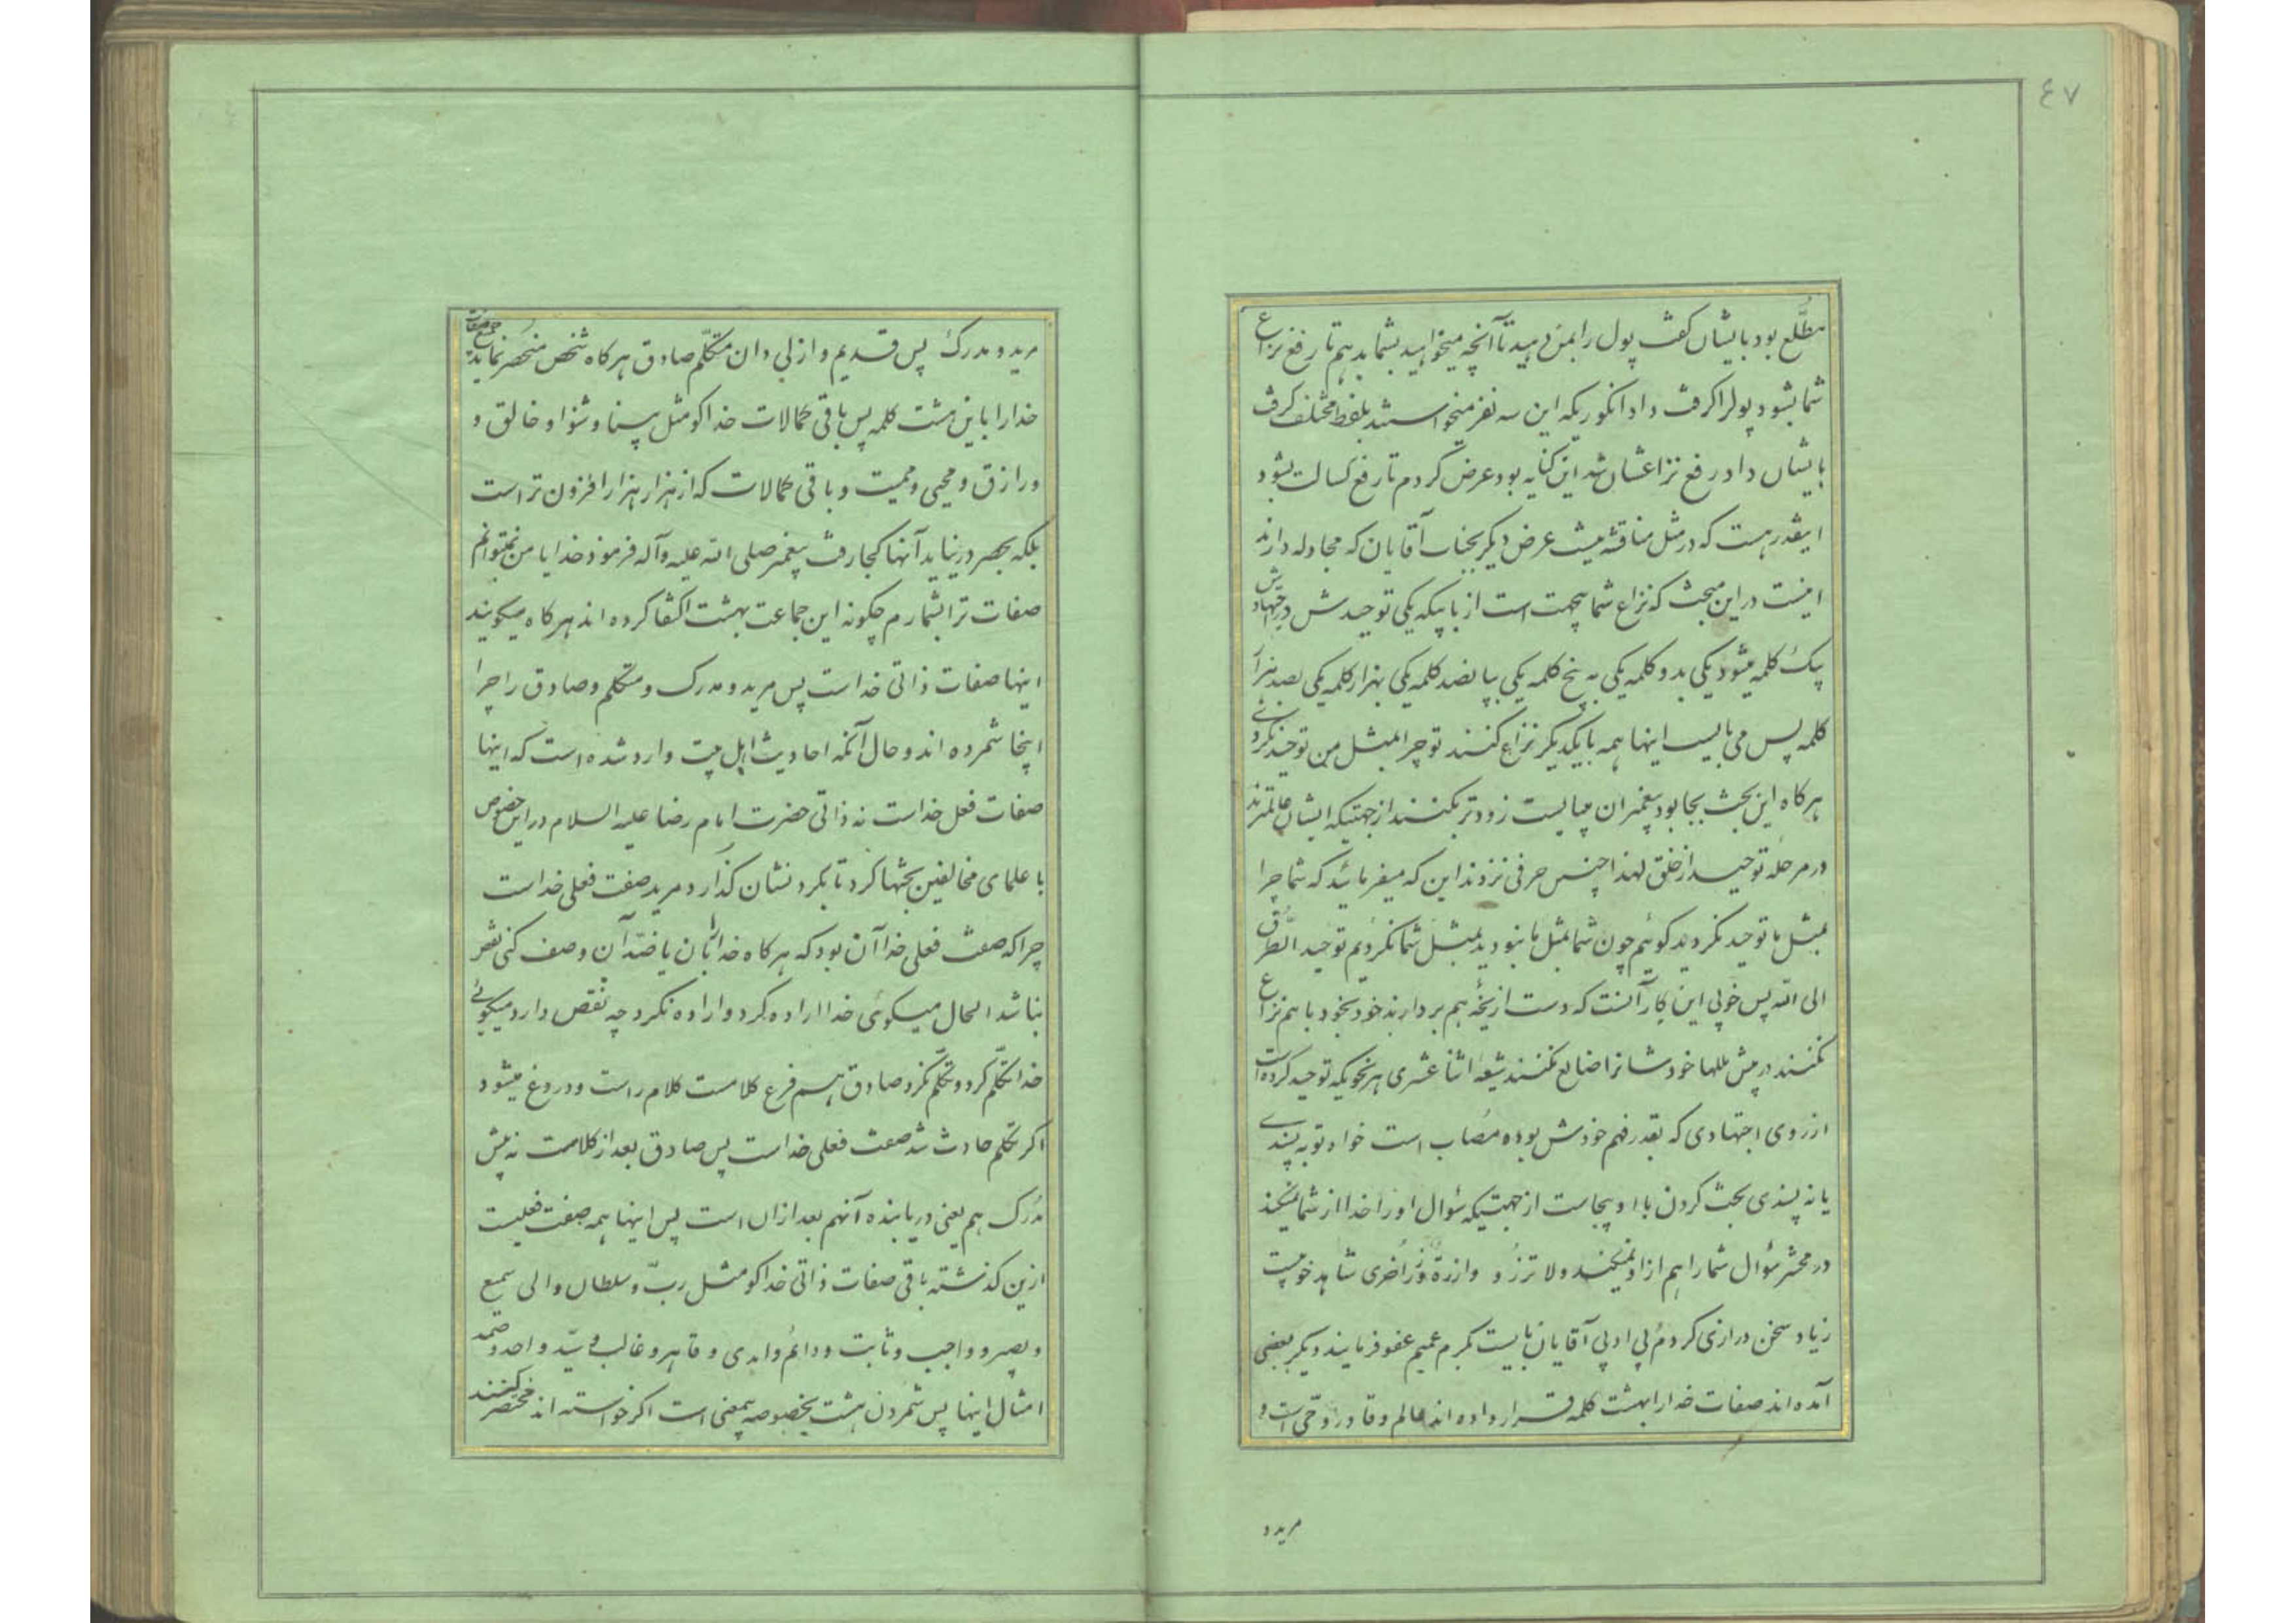 ٤٧
مطَّلع بود بایشان کفت پول را بمن دهید تا آنچه میخواهید بشما بدهم تا رفع نزاع
شما بشود پولرا کرفت داد انکوریکه این سه نفر میخواستند بلفظ مختلف کرفت
بایشان داد رفع نزاعشان شد این کنایه بود عرض کردم تا رفع کسالت بشود
اینقدر هست که در مثل مناقشه نیست عرض دیکر بجناب آقایان که مجادله دارند
اینست در این مبحث که نزاع شما بیجهت است از بابیکه یکی توحیدش در اجتهادش
بیک کلمه میشود یکی بدو کلمه یکی به پنج کلمه یکی بپانصد کلمه یکی بهزار کلمه یکی بصد هزار
کلمه پس می بایست اینها همه با یکدیکر نزاع کنند تو چرا بمثل من توحید نکردئی
هرکاه این بحث بجا بود پیغمبران میبایست زودتر بکنند از جهتیکه ایشان عالمترند
در مرحله توحید از خلق لهذا چنین حرفی نزدند این که میفرمائید که شما چرا
بمثل ما توحید نکردید کوئیم چون شما بمثل ما نبودید بمثل شما نکردیم توحید الطُّرق
الی الله پس خوبی این کار آنست که دست از یخهٔ هم بردارند خود بخود باهم نزاع
نکنند در پیش مللها خودشانرا ضایع نکنند شیعه اثنا عشری هر نحویکه توحید کرده است
از روی اجتهادی که بقدر فهم خودش بوده مُصاب است خواه تو به پسندی
یا نه پسندی بحث کردن با او بیجاست از جهتیکه سُوال او را خدا از شما نمیکند
در محشر سُوال شما را هم از او نمیکند ولا تزرُ و وازرةٌ وِزرَ اُخری شاهد خوبیست
زیاد سخن درازی کردم بی ادبی آقایان بایست بکرم عمیم عفو فرمایند دیکر بعضی
آمده اند صفات خدا را بهشت کلمه قرار داده اند عالم و قادر و حّی است و
مرید و
مرید و مدرک پس قدیم و ازلی دان متکلّم صادق هرکاه شخص منحصر نماید جمع صفات
خدا را باین هشت کلمه پس باقی کمالات خدا کو مثل بینا و شنوا و خالق و
و رازق و محیی و ممیت و باقی کمالات که از هزار هزار افزون تر است
بلکه بحصر در نیاید آنها کجا رفت پیغمبر صلی الله علیه وآله فرمود خدایا من نمیتوانم
صفات ترا بشمارم چکونه این جماعت بهشت اکتفا کرده اند هرکاه میکویند
اینها صفات ذاتی خداست پس مرید و مدرک و متکلم و صادق را چرا
اینجا شمرده اند و حال آنکه احادیث اهل بیت وارد شده است که اینها
صفات فعل خداست نه ذاتی حضرت امام رضا علیه السلام در این خصوص
با علمای مخالفین بحثها کرد تا بکردنشان کذارد مرید صفت فعلی خداست
چرا که صفت فعلی خدا آن بود که هرکاه خدا را بآن یا ضدّ آن وصف کنی نقص
نباشد الحال میکوئی خدا اراده کرد و اراده نکرد چه نقص دارد میکوئی
خدا تکّلم کرد و تکّلم نکرد صادق هم فرع کلامست کلام راست و دروغ میشود
اکر تکلم حادث شد صفت فعلی خداست پس صادق بعد از کلامست نه پیش
مُدرک هم یعنی دریابنده آنهم بعد ازان است پس اینها همه صفت فعلیست
ازین کذشته باقی صفات ذاتی خدا کو مثل ربّ و سلطان و الی سمیع
و بصیر و واجب و ثابت و دائم و ابدی و قاهر و غالب و سیّد و احد و صمد
امثال اینها پس شمردن هشت بخصوصه بیمعنی است اکر خواسته اند مختصر کنند